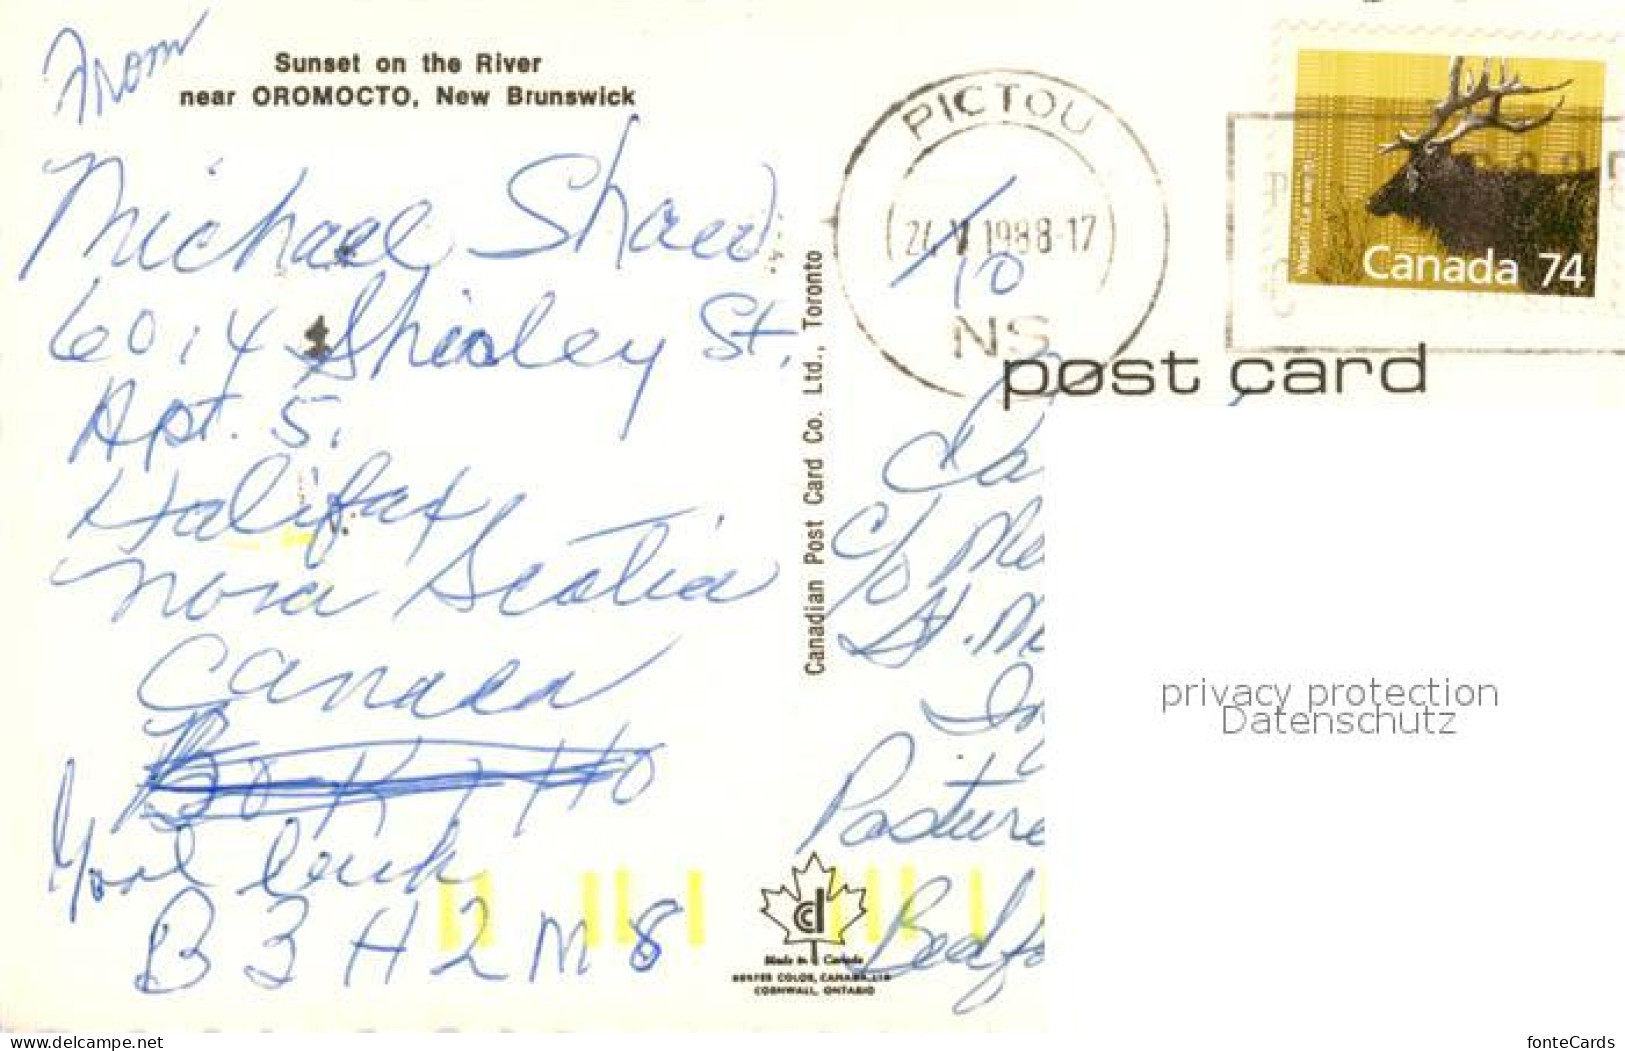 From
Sunset on the River
near OROMOCTO, New Brunswick
Michael Shaw
6014 Shirley St.
Apt. 5.
Halifax
Nova Scotia
Canada
Good luck
B3H2M8
Canadian Post Card Co. Ltd., Toronto
Made in Canada
CORNWALL, ONTARIO
PICTOU
1988-17
NS
To
Wapiti
Canada 74
post card
c/o
St.
Pasture
Bedfo
privacy protection
Datenschutz
www.delcampe.net
fonteCards